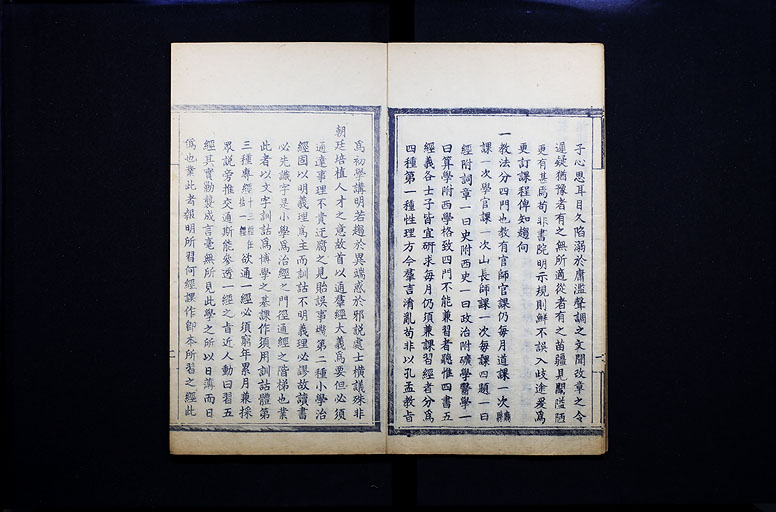 子心思耳目久陷溺於庸濫聲調之文聞改章之令
遲疑猶豫者有之無所適從者有之苗疆見聞隘陋
更有甚焉苟非書院明示規則鮮不誤入歧途爰為
更訂課程俾知趨向
一教法分四門也教有官師官課仍每月道課一次
課一次學官課一次山長師課一次每課四題一曰
經附詞章一曰史附西史一曰政治附礦學醫學一
曰算學附西學格致四門不能兼習者聽惟四書五
經義各士子皆宜研求每月仍須兼課習經者分為
四種第一種性理方今羣言淆亂苟非以孔孟教旨
為初學講明若趨於異端惑於邪說處士橫議殊非
朝廷培植人才之意故首以通羣經大義為要但必須
通達事理不貴迂腐之見貽誤事機第二種小學治
經固以明義理為主而訓詁不明義理必謬故讀書
必先識字是小學為治經之門徑通經之階梯也業
此者以文字訓詁為博學之基課作須用訓詁體第
三種專經十三經任
欲通一經必須窮年累月兼採
眾說旁推交通斯能參透一經之旨近人動曰習五
經其實勦襲成言毫無所見此學之所以日薄而日
偽也業此者報明所習何經課作即本所習之經此